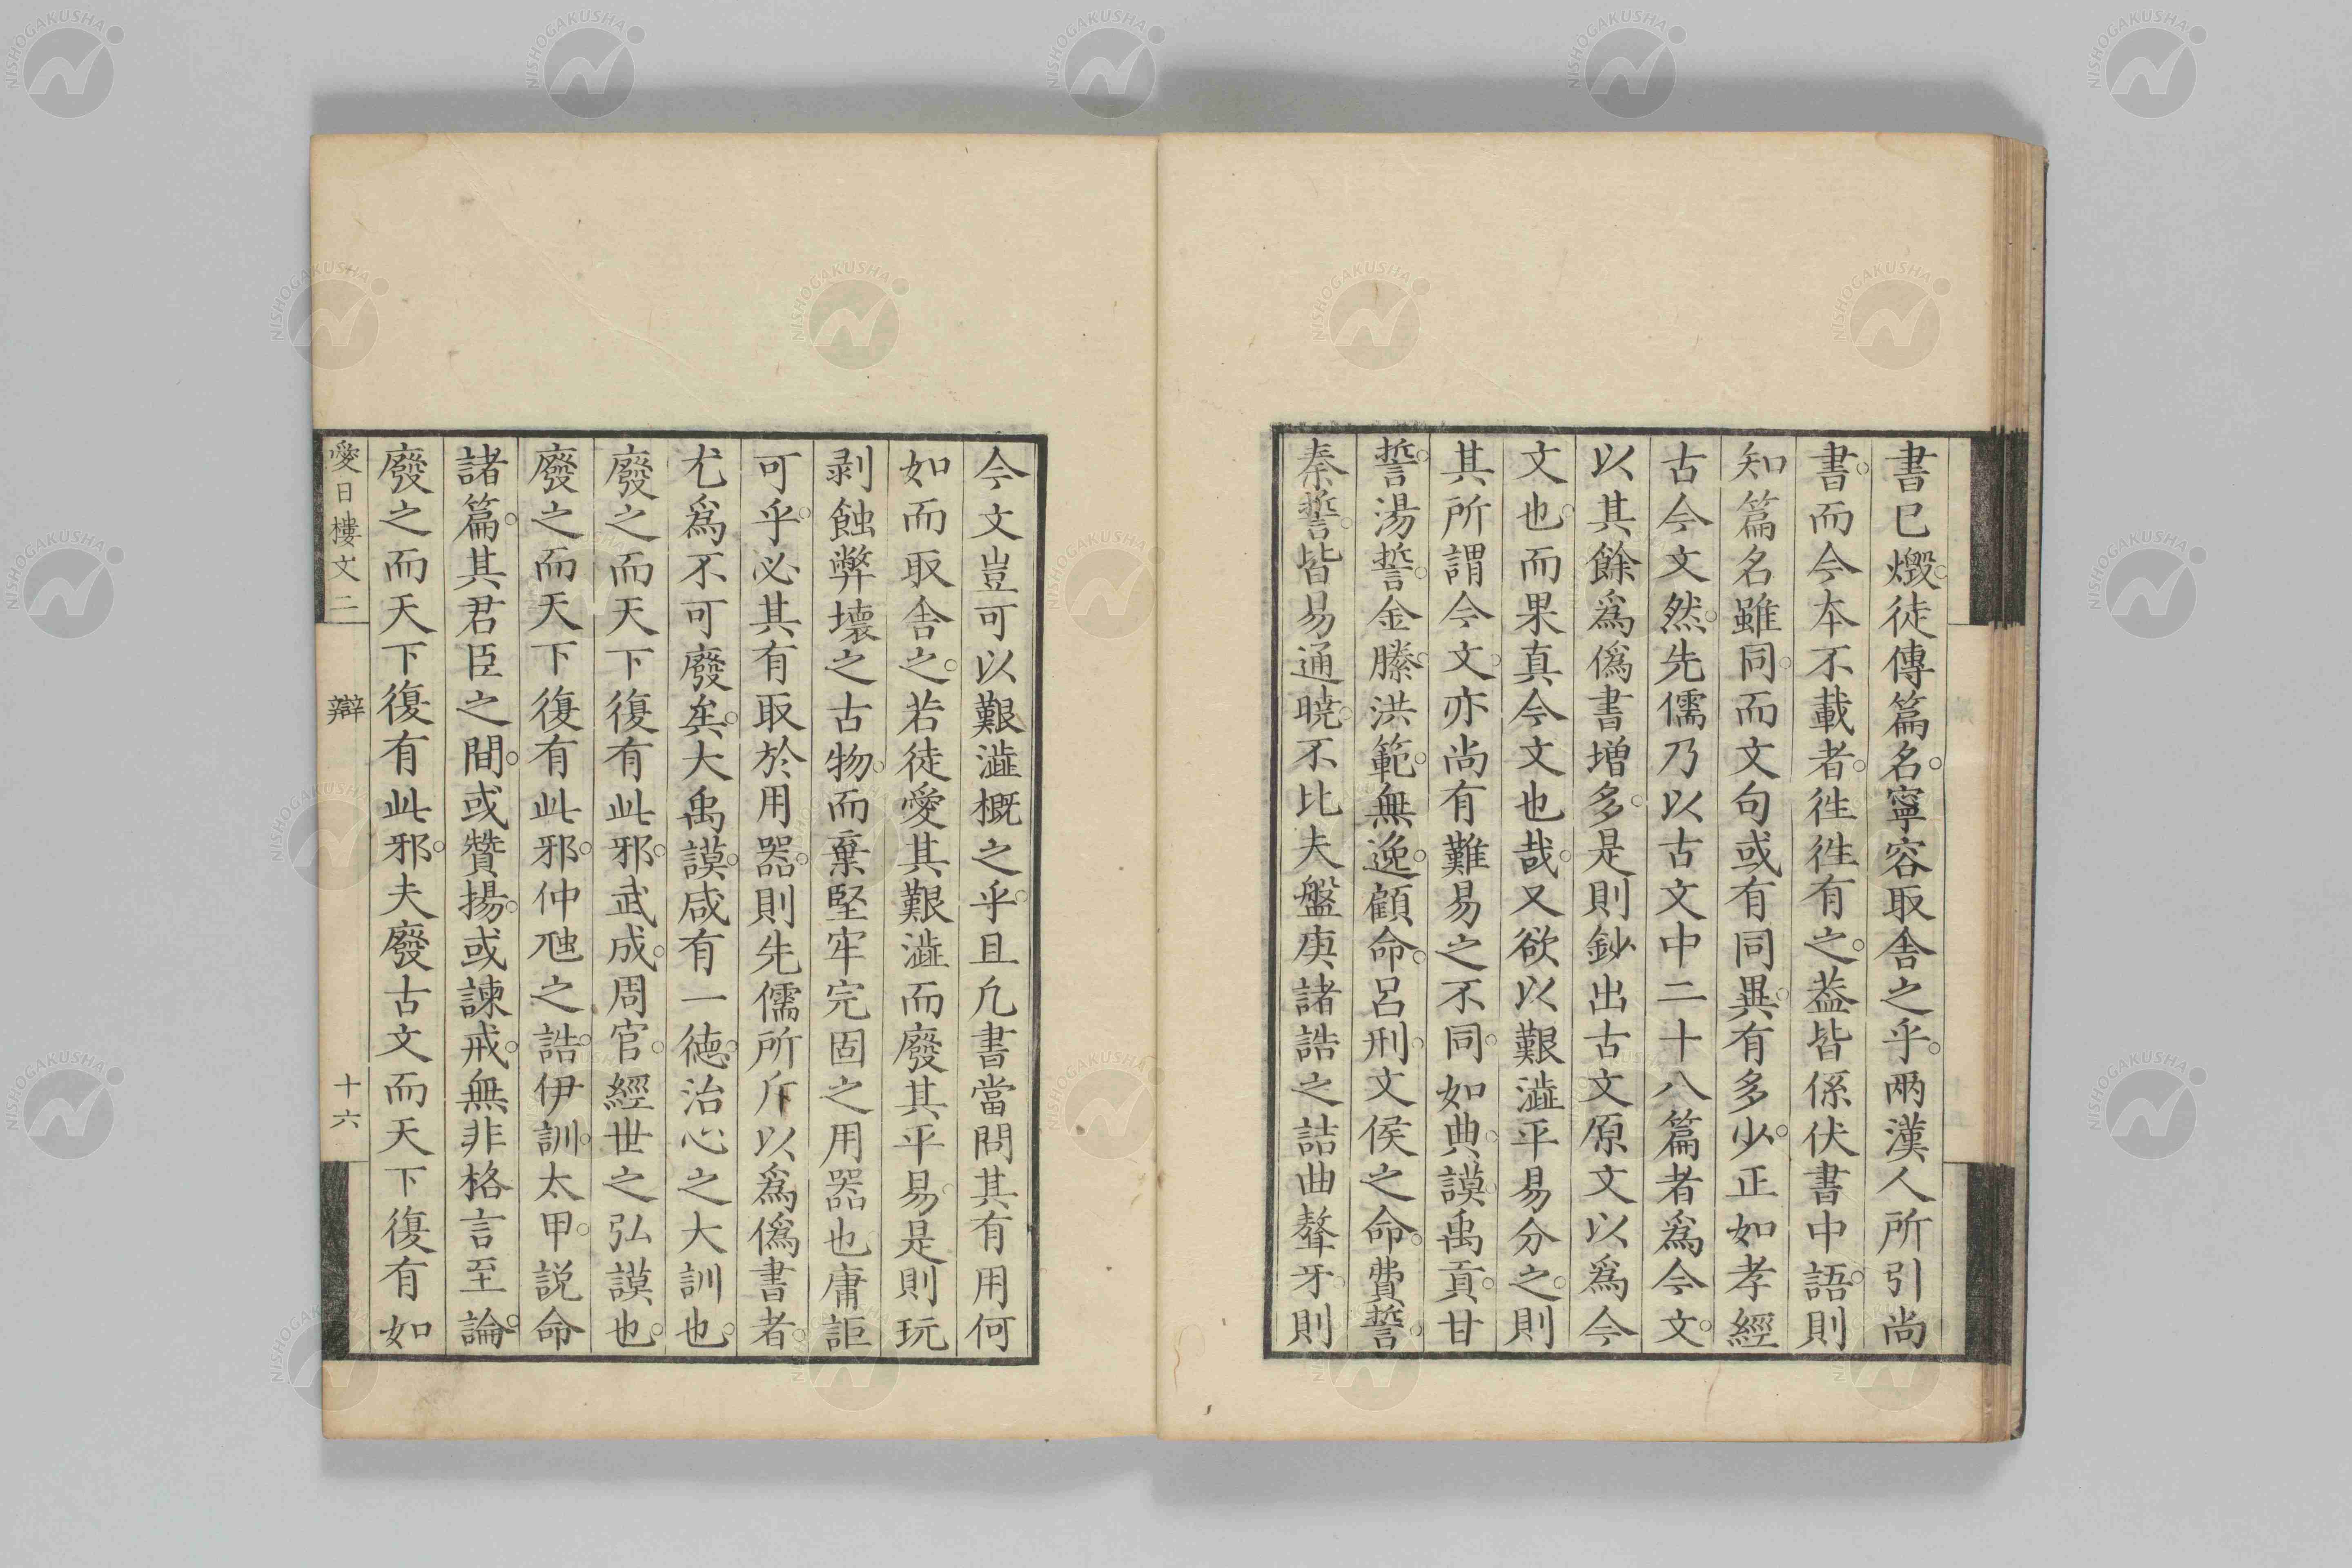 書已燬。徒傳篇名。寧容取舍之乎。兩漢人所引尚
書。而今本不載者。徃徃有之。葢皆係伏書中語。則
知篇名雖同。而文句或有同異。有多少。正如孝經
古今文然。先儒乃以古文中二十八篇者爲今文。
以其餘爲僞書增多。是則鈔出古文原文以爲今
文也。而果真今文也哉。又欲以艱澁平易分之。則
其所謂今文。亦尚有難易之不同。如典。謨。禹貢。甘
誓。湯誓。金縢。洪範。無逸。顧命。呂刑。文侯之命。費誓。
秦誓。皆易通曉。不比夫盤庚諸誥之詰曲聱牙。則
今文豈可以艱澁概之乎。且凢書當問其有用何
如而取舍之。若徒愛其艱澁而廢其平易。是則玩
剥蝕弊壞之古物。而棄堅牢完固之用器也。庸詎
可乎。必其有取於用器。則先儒所斥以爲僞書者。
尤爲不可廢矣。大禹謨。咸有一德。治心之大訓也。
廢之而天下復有此邪。武成。周官。經世之弘謨也。
廢之而天下復有此邪。仲虺之誥。伊訓。太甲。説命
諸篇。其君臣之間。或贊揚。或諫戒。無非格言至論。
廢之而天下復有此邪。夫廢古文而天下復有如
愛日樓文二 辯 十六
NISHOGAKUSHA